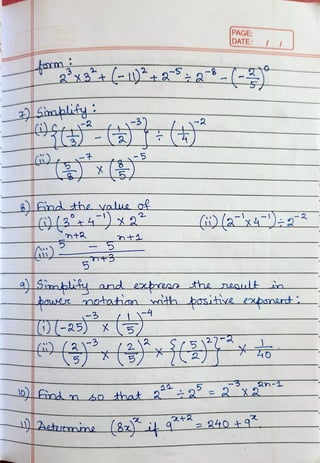 PAGE:
DATE: / /
form :
2³ × 3² + (-11)² + 2⁻⁵ ÷ 2⁻⁸ - (-2/5)⁰
7) Simplify :
(i) {(1/3)⁻² - (1/2)⁻³} ÷ (1/4)⁻²
(ii) (5/8)⁻⁷ × (8/5)⁻⁵
8) Find the value of
(i) (3⁰ + 4⁻¹) × 2² (ii) (2⁻¹ × 4⁻¹) ÷ 2⁻²
(iii) (5ⁿ⁺² - 5ⁿ⁺¹)/5ⁿ⁺³
9) Simplify and express the result in
power notation with positive exponent :
(i) (-25)⁻³ × (1/5)⁻⁴
(ii) (2/5)⁻³ × (2/5)² × {(5/2)²}⁻² × 1/40
10) Find n so that 2¹¹ ÷ 2⁵ = 2⁻³ × 2²ⁿ⁻¹
11) Determine (8x)ˣ if 9ˣ⁺² = 240 + 9ˣ.